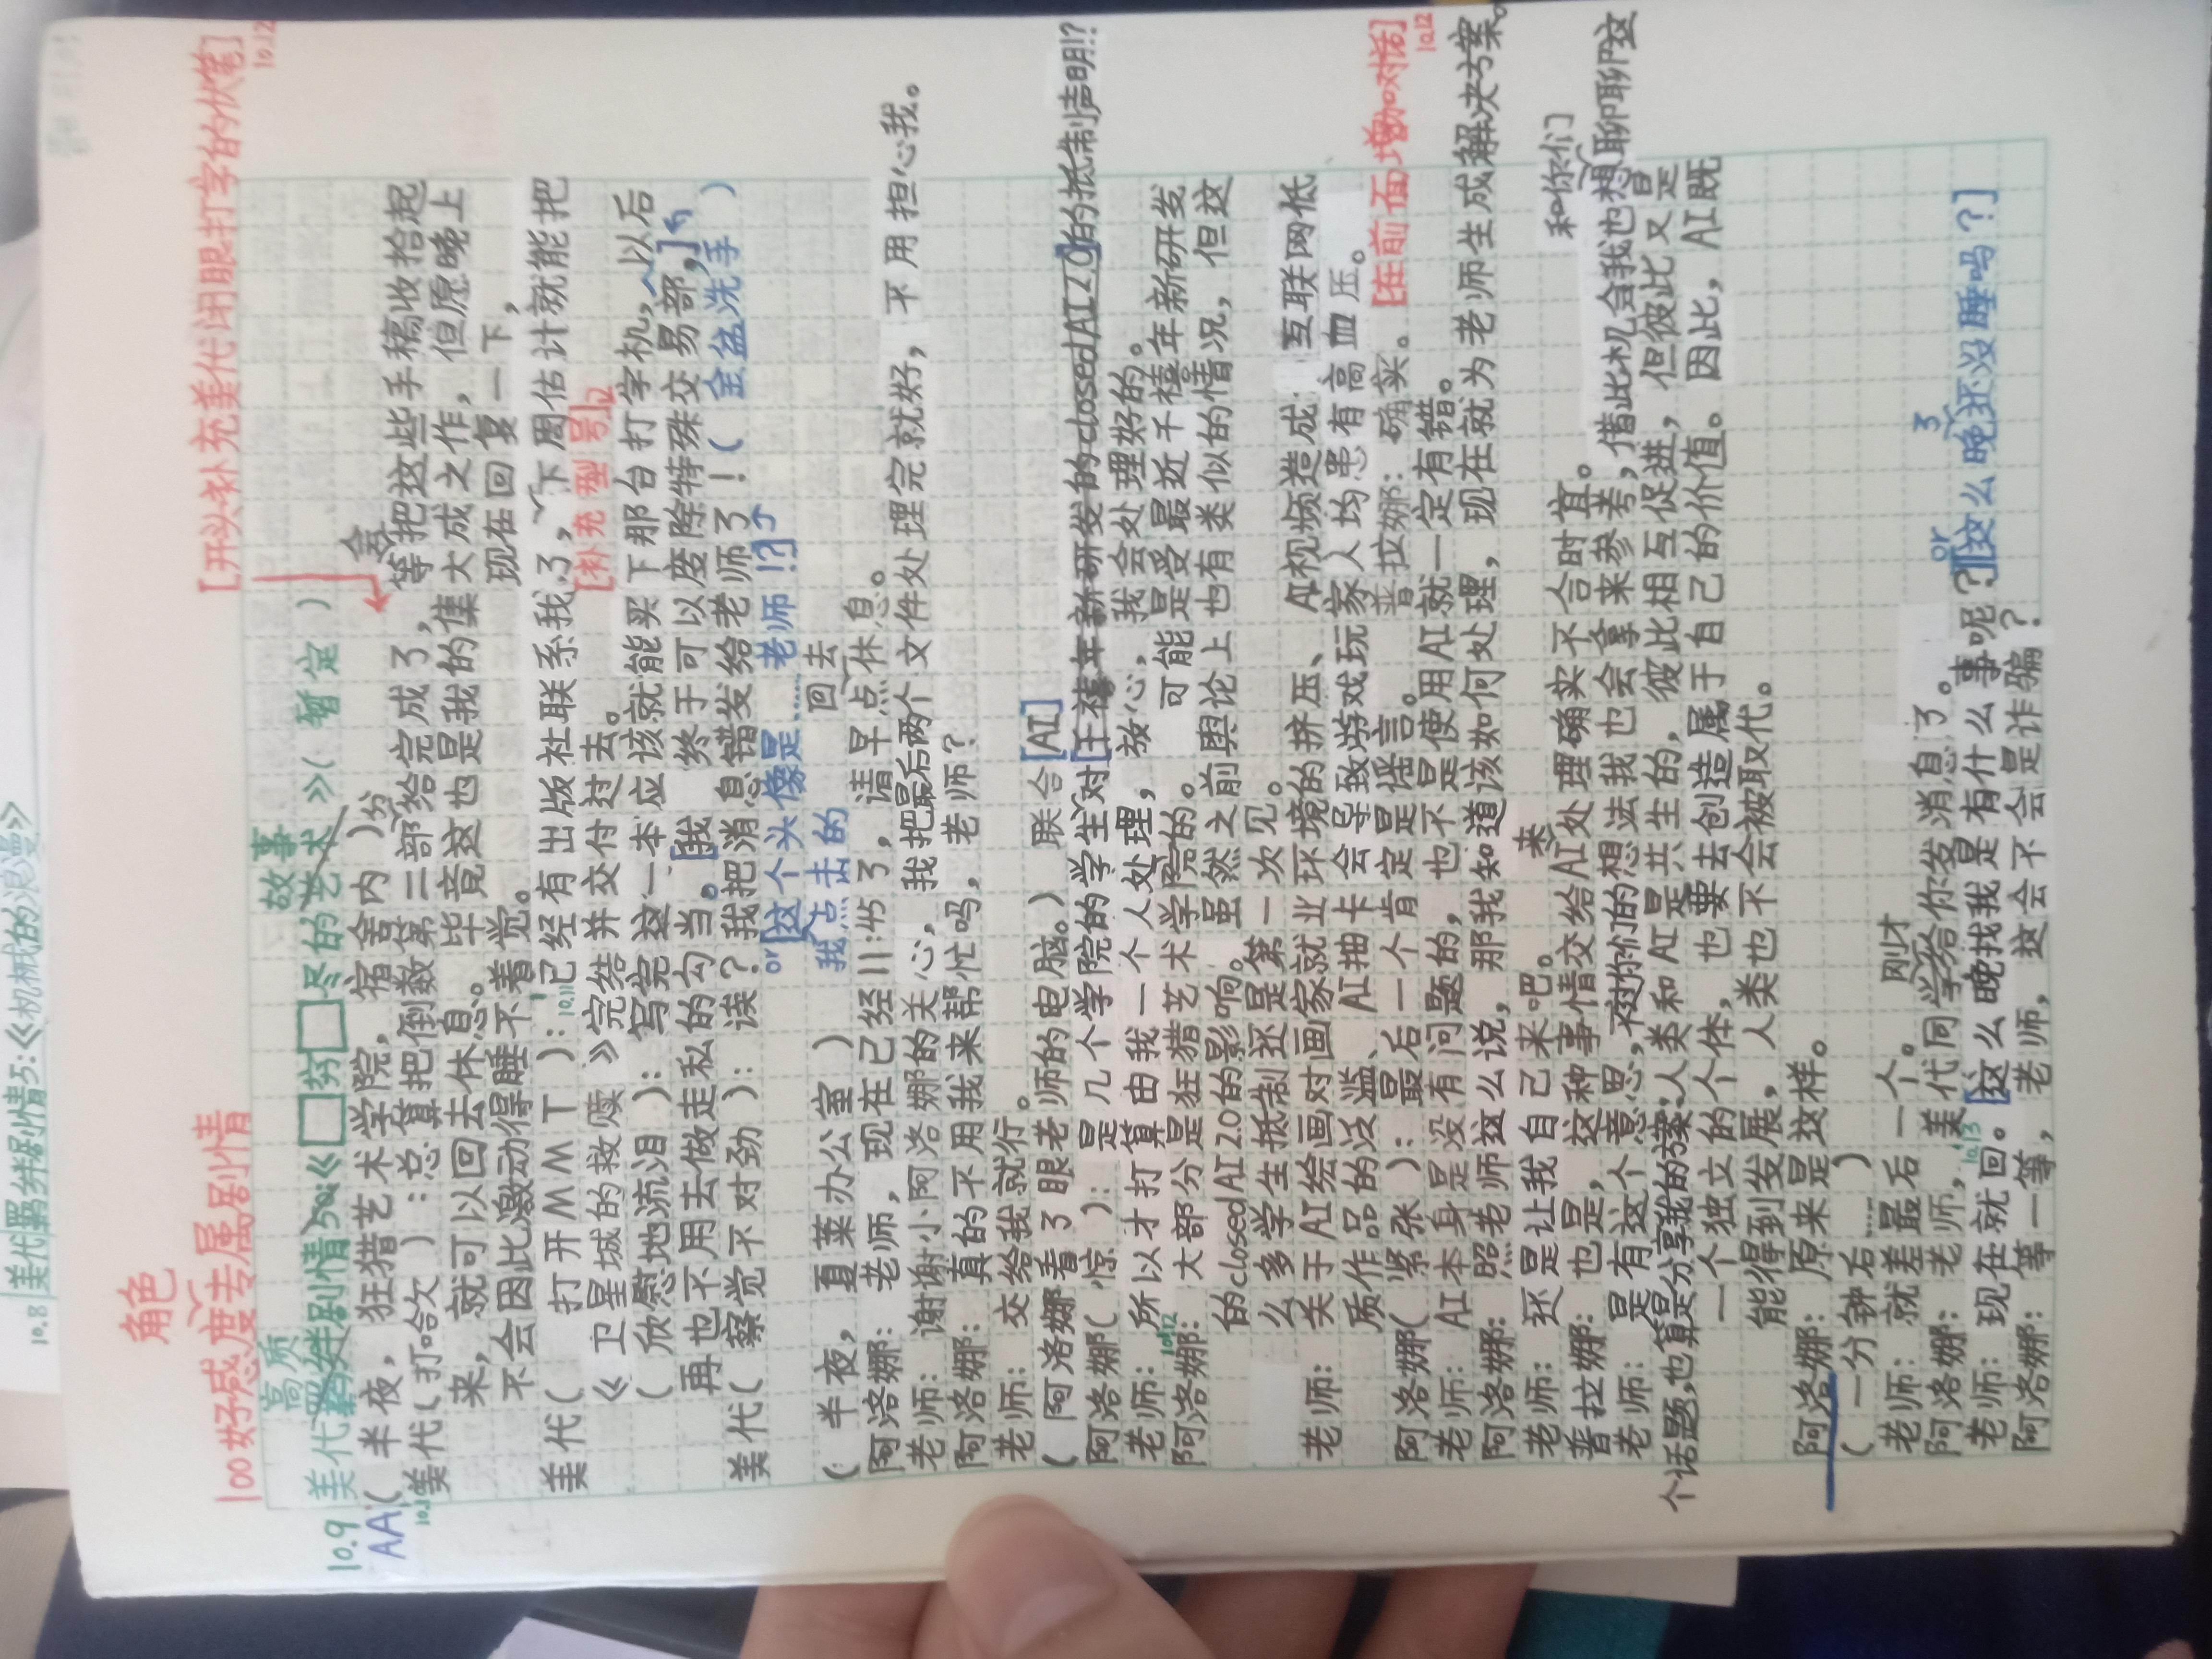 10.8 美代羁绊剧情5:《机械的浪漫》
[开头补充美代闭眼打字的伏笔]
10.12
角色
100好感度专属剧情
高质
故事
10.9 美代羁绊剧情5《□穷□尽的艺术》(暂定)
AA(半夜,狂猎艺术学院,宿舍内)
10.10
份
会
美代(打哈欠):总算把倒数第二部给完成了,等把这些手稿收拾起
来,就可以回去休息。毕竟这也是我的集大成之作,但愿晚上
不会因此激动得睡不着觉。现在回复一下,
美代(打开MMT):已经有出版社联系我了,下周估计就能把
10.11
《卫星城的救赎》完结并交付过去。
[补充型号]12
(欣慰地流泪):写完这一本应该就能买下那台打字机,以后
再也不用去做走私的勾当。[我终于可以废除特殊交易部,]
美代(察觉不对劲):诶?我把消息错发给老师了!(金盆洗手)
or[这个头像是……老师!?]
我点击的
(半夜,夏莱办公室)
回去
阿洛娜:老师,现在已经11:45了,请早点休息。
老师:谢谢小阿洛娜的关心,我把最后两个文件处理完就好,不用担心我。
阿洛娜:真的不用我来帮忙吗,老师?
老师:交给我就行。
(阿洛娜看了眼老师的电脑。)联合[AI]
阿洛娜(惊):是几个学院的学生对[千禧年新研发的closedAI2.0]的抵制声明!?
老师:所以才打算由我一个人处理,放心,我会处理好的。
10.12
阿洛娜:大部分是狂猎艺术学院的。可能是受最近千禧年新研发
的closedAI2.0的影响。虽然之前舆论上也有类似的情况,但这
么多学生抵制还是第一次见。
老师:关于AI绘画对画家就业环境的挤压、AI视频造成互联网低
质作品的泛滥、AI抽卡会导致游戏玩家人均患有高血压。
阿洛娜(紧张):最后一个肯定是谣言。普拉娜:确实。[在前面增加对话]
10.12
老师:AI本身是没有问题的,也不是使用AI就一定有错。
阿洛娜:照老师这么说,那我知道该如何处理,现在就为老师生成解决方案。
老师:还是让我自己来吧。
来
普拉娜:也是,这种事情交给AI处理确实不合时宜。
和你们
老师:是有这个意思,不过你们的想法我也会拿来参考,借此机会我也想聊聊这
个话题,也算是分享我的答案,人类和AI是共生的,彼此相互促进,但彼此又是
一个独立的个体,也要去创造属于自己的价值。因此,AI既
能得到发展,人类也不会被取代。
阿洛娜:原来是这样。
(一分钟后……)
老师:就差最后一个。
刚才
阿洛娜:老师,美代同学给你发消息了。
10.13
老师:现在就回。[这么晚找我是有什么事呢?]
or
[这么晚了还没睡吗?]
阿洛娜:等一等,老师,这会不会是诈骗?